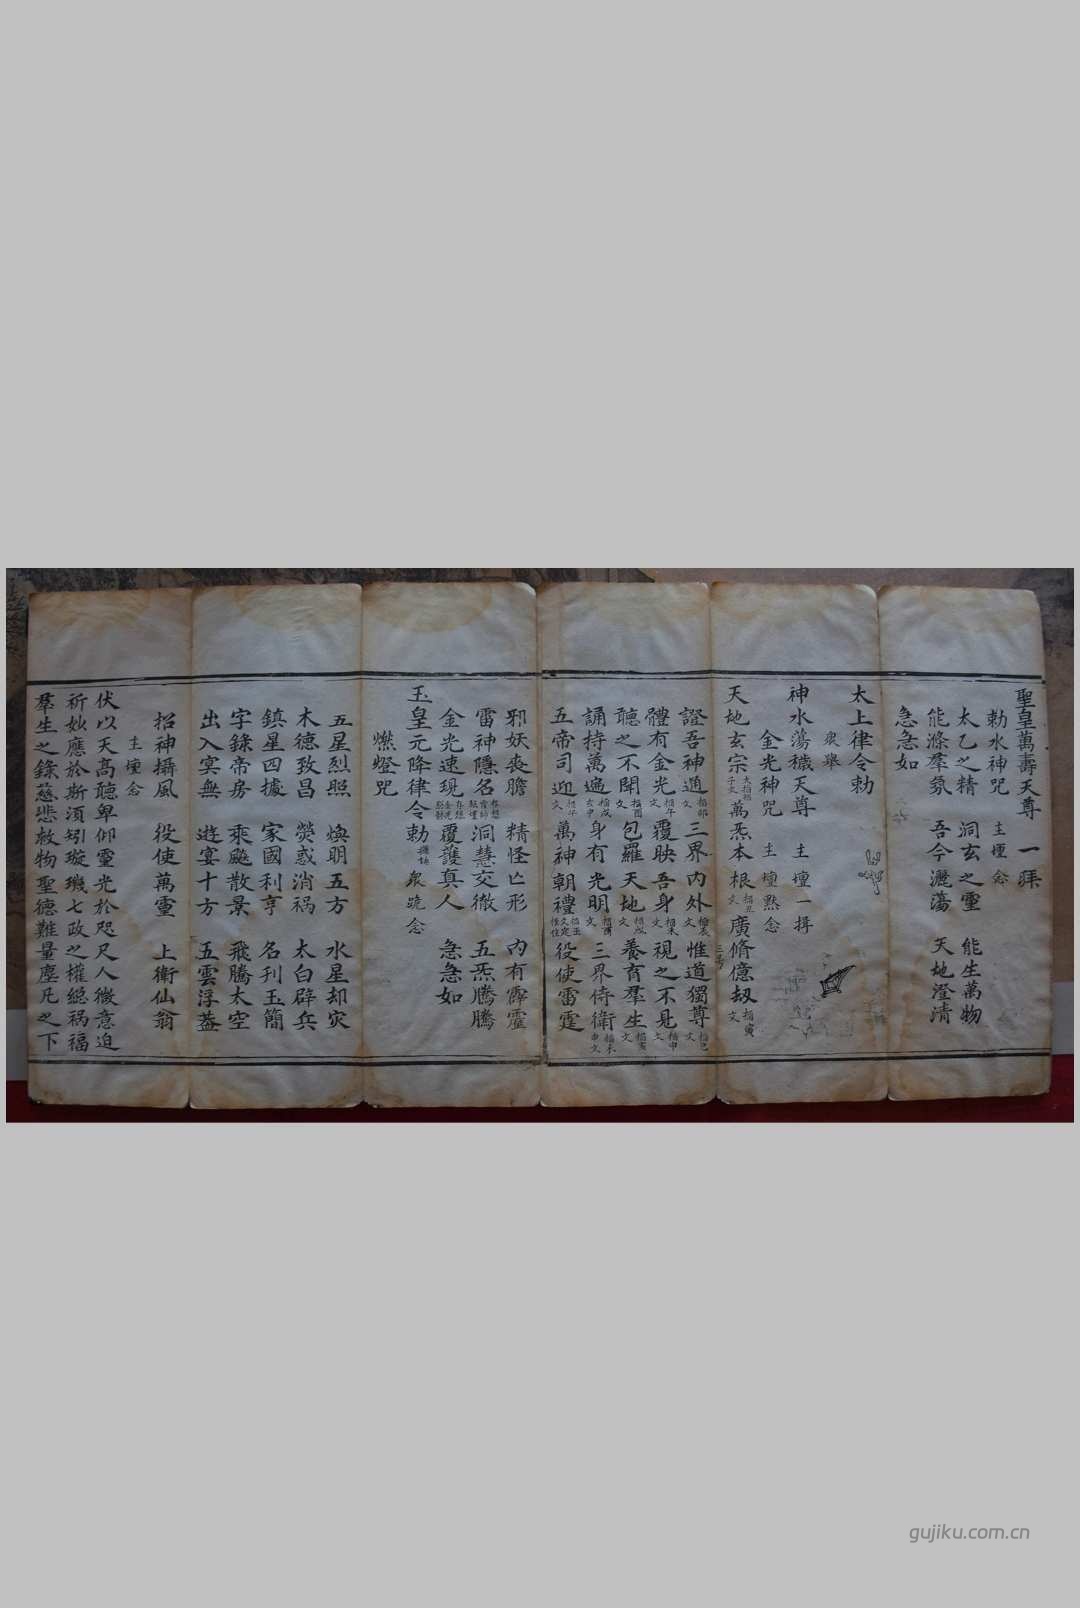 聖皇萬壽天尊 一拜
勅水神咒 主壇念
太乙之精 洞玄之靈 能生萬物
能滌羣氛 吾今灑蕩 天地澄清
急急如
太上律令勅
衆舉
神水蕩穢天尊 主壇一揖
金光神咒 主壇默念
天地玄宗 萬炁本根 廣脩億劫
證吾神通 三界內外 惟道獨尊
體有金光 覆映吾身 視之不見
聽之不聞 包羅天地 養育羣生
誦持萬遍 身有光明 三界侍衛
五帝司迎 萬神朝禮 役使雷霆
邪妖喪膽 精怪亡形 內有霹靂
雷神隱名 洞慧交徹 五炁騰騰
金光速現 覆護真人 急急如
玉皇元降律令勅 衆 念
燃燈咒
五星烈照 煥明五方 水星却灾
木德致昌 熒惑消祸 太白辟兵
鎮星四據 家國利亨 名刋玉簡
字錄帝房 乘飈散景 飛騰太空
出入冥無 遊宴十方 五雲浮葢
招神攝風 役使萬靈 上衛仙翁
主壇念
伏以天高聽卑仰靈光於咫尺人微意迫
祈妙應於斯須矧璇璣七政之權總祸福
羣生之錄慈悲救物聖德難量塵凡之下
gujiku.com.cn